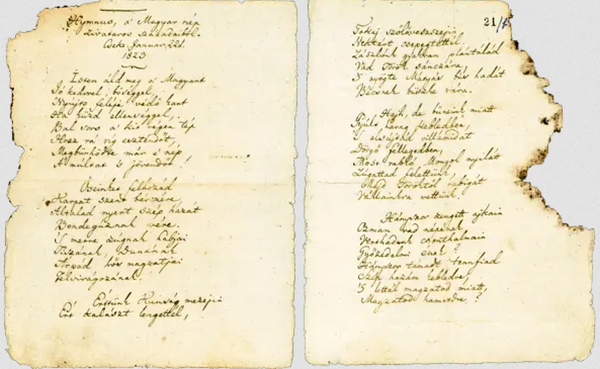 Hymnus, a' Magyar nép
zivataros századaiból.
Cseke, Januar. 22d.
1823
Isten áldd meg a' Magyart
Jó kedvvel, bőséggel,
Nyújts feléje védő kart
Ha küzd ellenséggel;
Bal sors a' kit régen tép
Hozz rá víg esztendőt,
Megbűnhődte már e' nép
A' múltat 's jövendőt!
Őseinket felhozád
Kárpát szent bérczére,
Általad nyert szép hazát
Bendegúznak vére.
'S merre zúgnak habjai
Tiszának, Dunának
Árpád hős magzatjai
Felvirágozának.
Értünk Kunság mezejin
Ért kalászt lengettél,
21/
Tokaj szőlővesszejin
Nektárt csepegtettél.
Zászlónk gyakran plántálád
Vad Török sáncára,
'S nyögte Mátyás bús hadát
Bécsnek büszke vára.
Hajh, de bűneink miatt
Gyúlt harag kebledben,
'S elsújtád villámidat
Dörgő fellegedben,
Most rabló Mongol nyilát
Zúgattad felettünk,
Majd Töröktől rabigát
Vállainkra vettünk.
Hányszor zengett ajkain
Ozman vad népének
Vert hadunk csonthalmain
Győzedelmi ének!
Hányszor támadt tenfiad
Szép hazám kebledre,
'S lettél magzatod miatt,
Magzatod hamvedre?